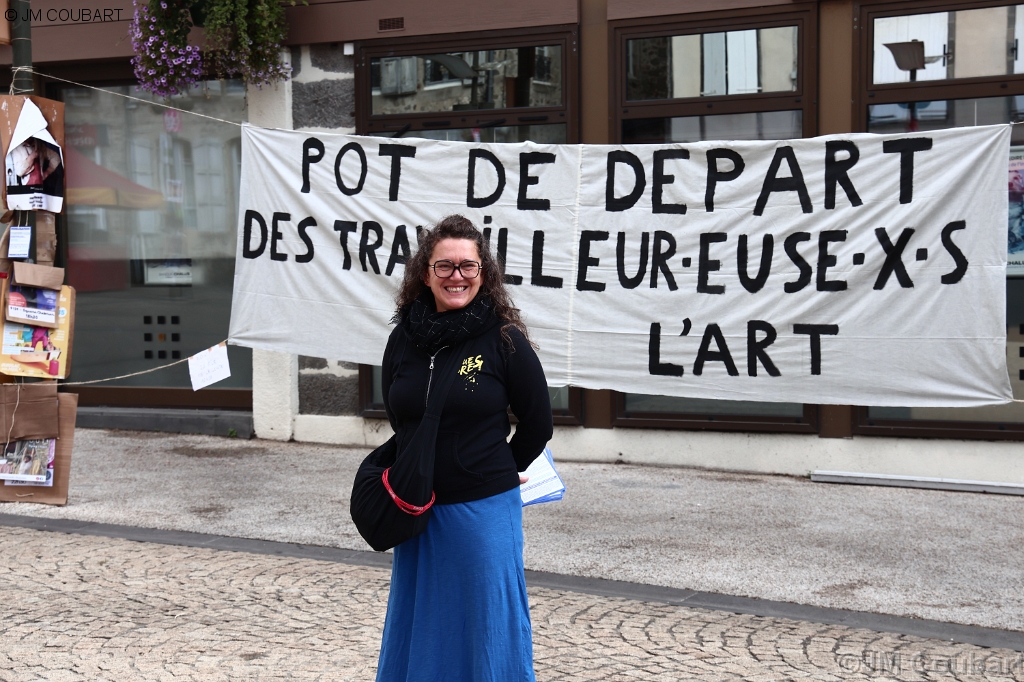 © JM COUBART
POT DE DEPART
DES TRAVAILLEUR·EUSE·X·S
L'ART
©JM Coubart